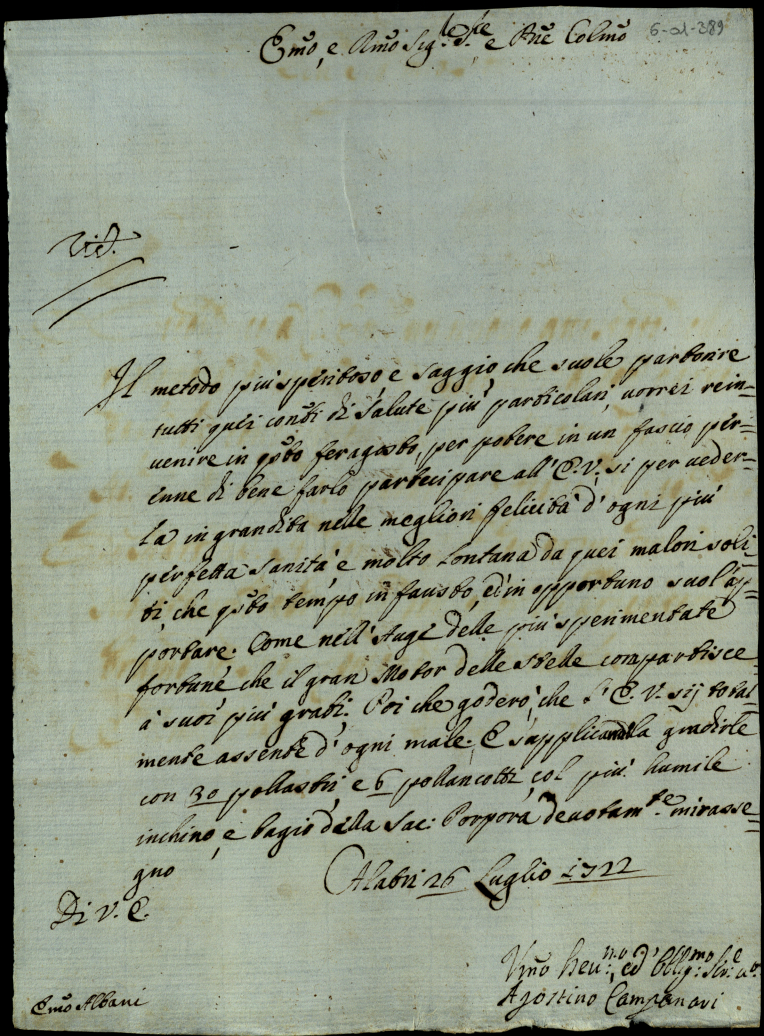 6-01-389
Em̃o, e Rm̃o Sig.le P.re e Pñe Colm̃o
Il metodo più spiritoso, e saggio, che suole partorire
tutti quei conti di salute più particolari, vorrei rein=
venire in qsto feragosto, per potere in un fascio per=
enne di bene farlo partecipare all' E.V., si per veder=
la ingrandita nelle megliori felicità d' ogni più
perfetta sanità, e molto lontana da quei malori soli=
ti, che qsto tempo infausto, ed inopportuno suol ap=
portare. Come nell' Auge delle più sperimentate
fortune, che il gran Motor delle stelle compartisce
a suoi più grati. Poi che goderò, che l' E. V. sij total=
mente assente d' ogni male. E supplicandola gradirle
con 30 pollastri, e 6 pollancotti, col più humile
inchino, e bagio della Sac: Porpora devotam.te mi rasse=
gno
Di V. E.
Alatri 26 Luglio 1722
Vm̃o Dev.mo, ed' Obblig.mo Ser.e
Agostino Campanari
Em̃o Albani